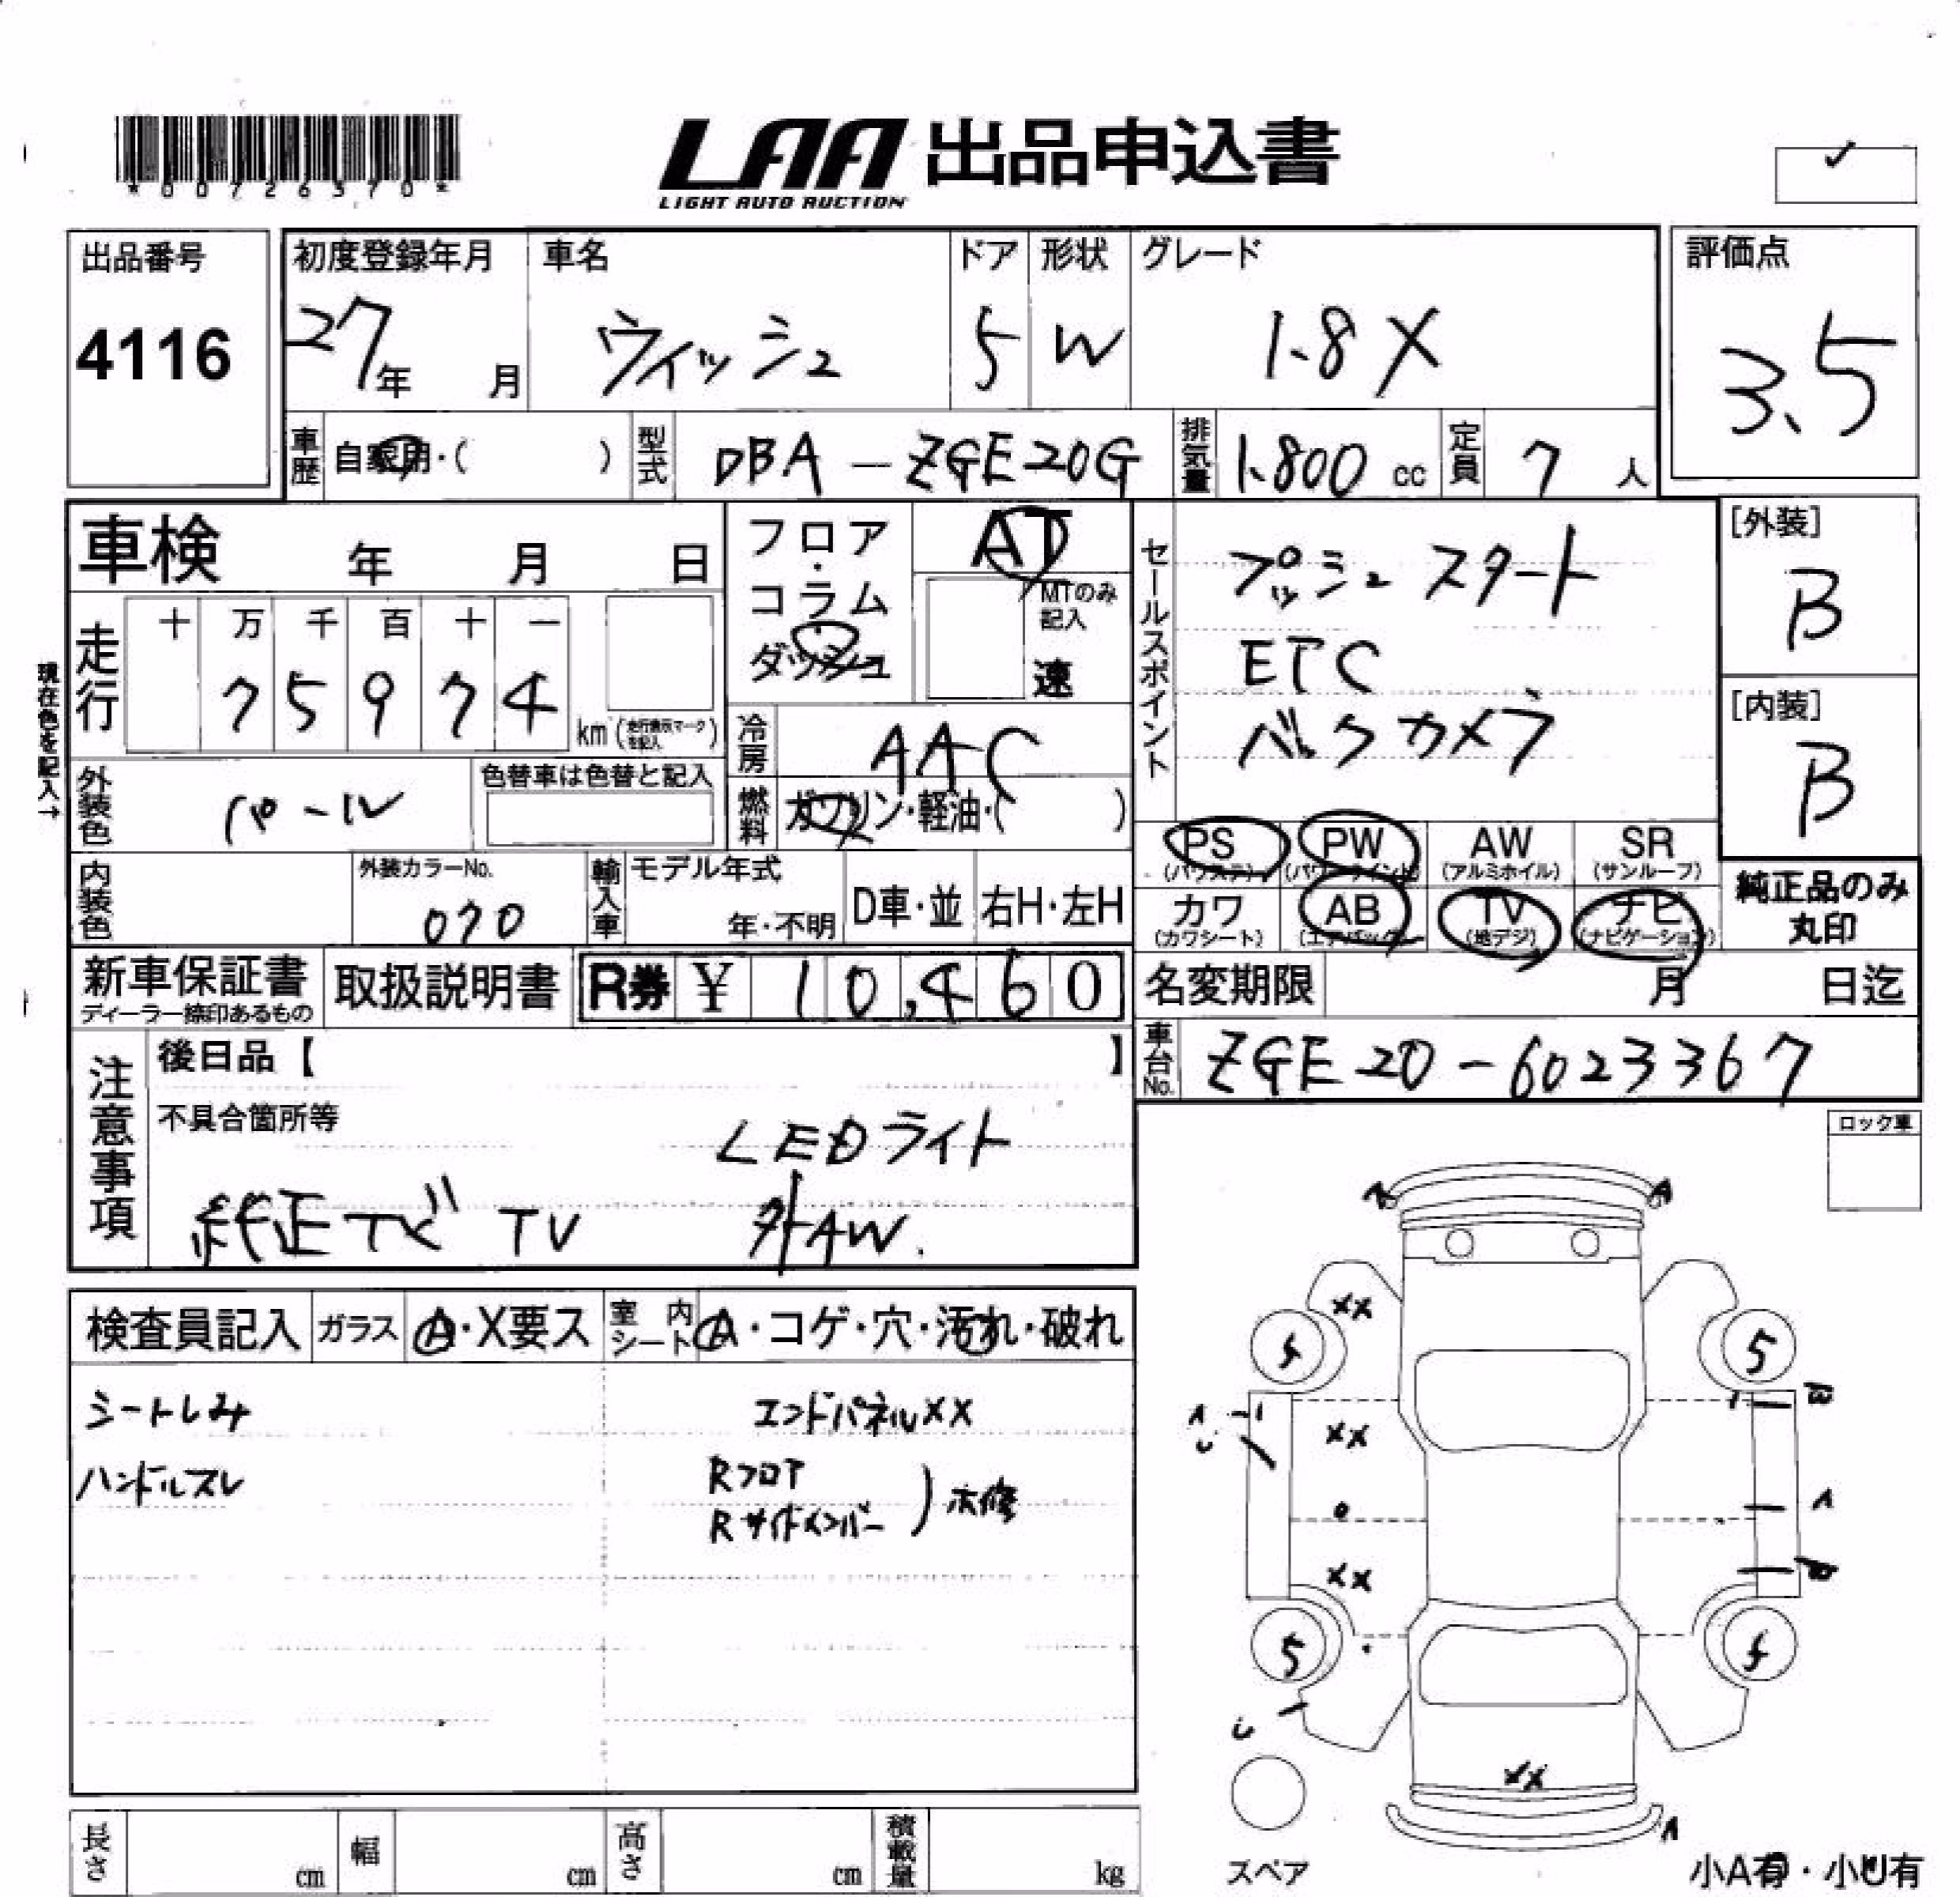 *00726370*
LAA 出品申込書
LIGHT AUTO AUCTION
✓
出品番号
4116
初度登録年月
27年 月
車名
ウィッシュ
ドア
5
形状
W
グレード
1.8X
評価点
3.5
車歴
自家用・( )
型式
DBA-ZGE20G
排気量
1.800 cc
定員
7 人
車検 年 月 日
フロア・コラム・ダッシュ
AT
MTのみ記入
速
セールスポイント
プッシュスタート
ETC
バックカメラ
[外装]
B
[内装]
B
現在色を記入→
走行
十 万 千 百 十 一
7 5 9 7 4
km (走行表示マークを記入)
冷房
AAC
燃料
ガソリン・軽油・( )
外装色
パール
色替車は色替と記入
内装色
外装カラーNo.
070
輸入車
モデル年式
年・不明
D車・並
右H・左H
PS (パワステ)
PW (パワーウインド)
AW (アルミホイル)
SR (サンルーフ)
カワ (カワシート)
AB (エアバック)
TV (地デジ)
ナビ (ナビゲーション)
純正品のみ
丸印
新車保証書
ディーラー捺印あるもの
取扱説明書
R券 ¥ 10,460
名変期限 月 日迄
車台No.
ZGE20-6023367
注意事項
後日品【 】
不具合箇所等
LEDライト
純正ナビ TV 外AW.
ロック車
検査員記入
ガラス
A・X要ス
室内シート
A・コゲ・穴・汚れ・破れ
シートしみ
ハンドルスレ
エンドパネルXX
Rフロア
Rサイドメンバー
)
A
A
XX
5
A
U
XX
W
A
XX
W
5
U
XX
A
スペア
小A有・小U有
長さ cm
幅 cm
高さ cm
積載量 kg